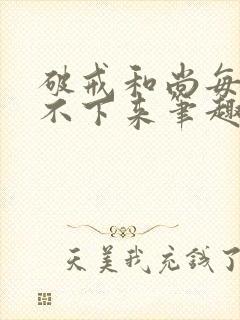 破戒和尚每
不下来笔趣
天美我充钱了